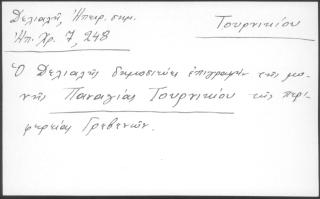 Δελιαλῆ, Ἠπειρ. σημ.
Ἠπ. Χρ. 7, 248
Τουρνικίου
Ὁ Δελιαλῆς δημοσιεύει ἐπιγραφὴν τῆς μο-
νῆς Παναγίας Τουρνικίου τῆς περι-
φερείας Γρεβενῶν.